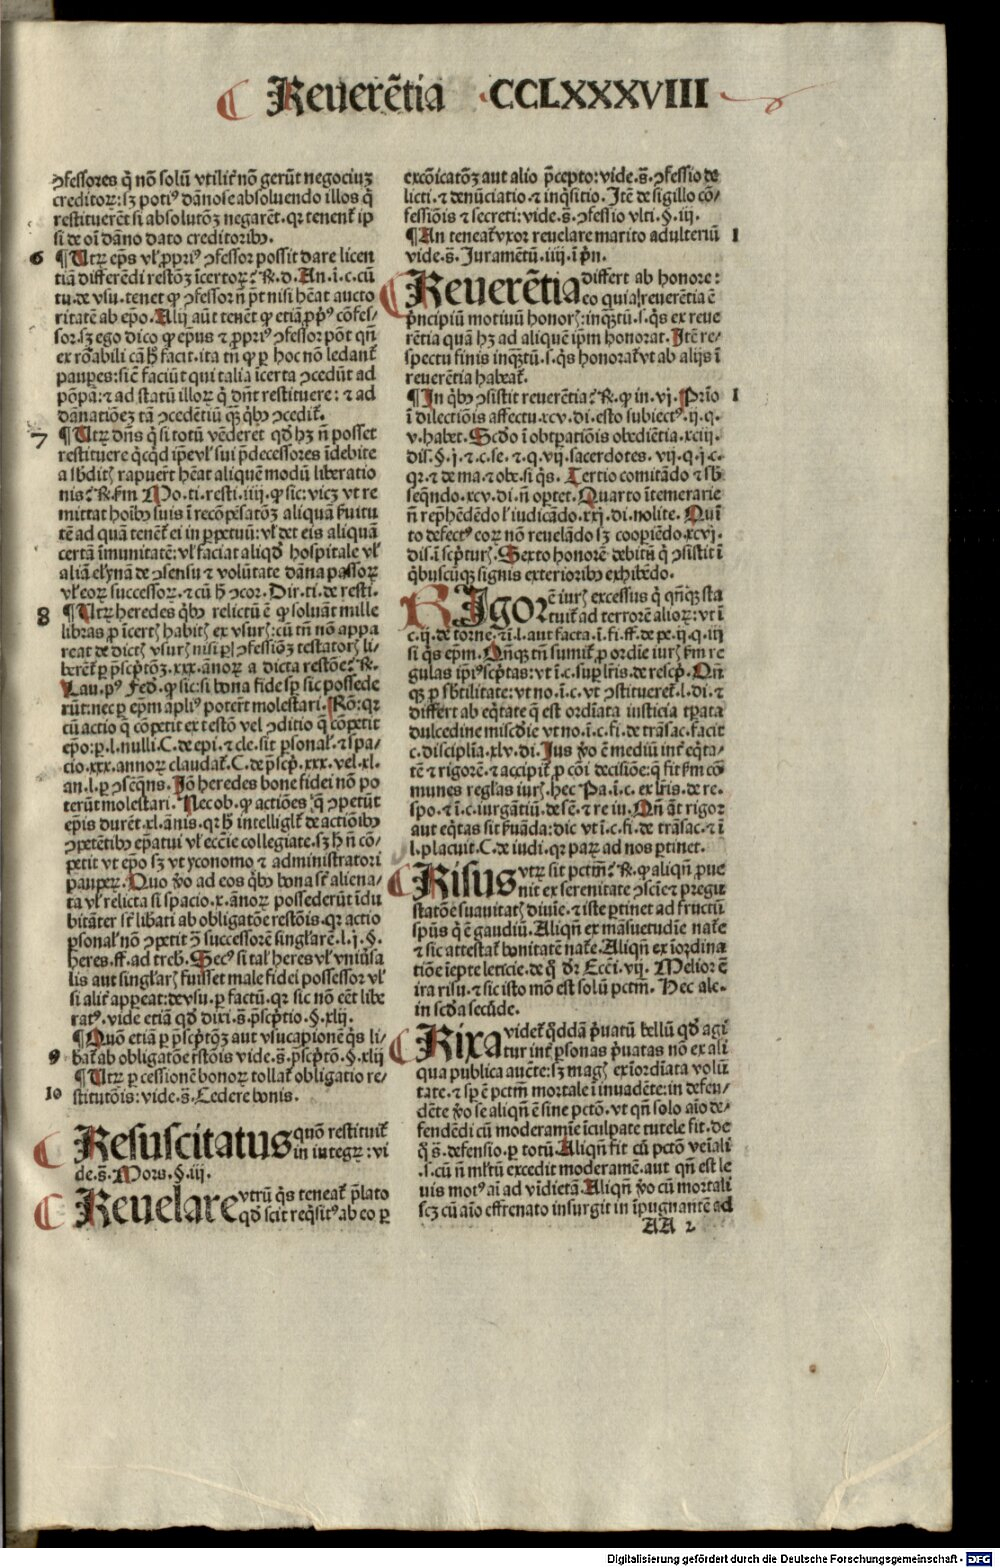 Reuerẽtia CCLXXXVIII
ꝯfessores q̃ nõ solũ vtilit̃ nõ gerũt negociuꝫ
creditoꝝ: sꝫ poti⁹ dãnose absoluendo illos q̃
restituerẽt si absolutõꝫ negarẽt. qꝛ tenent̃ ip
si de oĩ dãno dato creditoribꝰ.
6 ¶ Utꝝ ep̃s vl̓ ꝓpri⁹ ꝯfessor possit dare licen
tiã differẽdi restõꝫ ĩcertoꝝ: ℞. d. An. ĩ. c. cũ
tu. de vsu. tenet ꝙ ꝯfessor ñ põt nisi hẽat aucto
ritatẽ ab ep̃o. Alij aũt tenẽt ꝙ etiã ꝓp⁹ cõfes⸗
sor. sꝫ ego dico ꝙ ep̃us ⁊ ꝓpri⁹ ꝯfessor põt qñ
ex rõabili cã h̃ facit. ita tñ ꝙ ꝑ hoc nõ ledant̃
pauꝑes: sic̃ faciũt qui talia ĩcerta ꝯcedũt ad
põpã: ⁊ ad statũ illoꝝ q̃ dñt restituere: ⁊ ad
dãnatiõeꝫ tã ꝯcedẽtiũ qꝫ̃ qᷤbꝰ ꝯcedit̃.
7 ¶ Utꝝ dñs q̃ si totũ vẽderet qd̓ hꝫ ñ posset
restituere qͥcqd̓ ip̃e vl̓ sui p̃decessores ĩdebite
a sb̓ditꝭ rapuert̃ hẽat aliquẽ modũ liberatio
nis: ℞. ẜm Mo. ti. resti. iiij. ꝙ sic: vicꝫ vt re
mittat hoĩbꝰ suis ĩ recõpẽsatõꝫ aliquã ẜuitu
tẽ ad quã tenẽt̃ ei in ꝑpetuũ: vl̓ det eis aliquã
certã ĩmunitatẽ: vl̓ faciat aliqd̓ hospitale vl̓
aliã elỹnã de ꝯsensu ⁊ volũtate dãna passoꝝ
vl̓ eoꝝ successoꝝ. ⁊ cũ h̃ ꝯcor. Dir. ti. de resti.
8 ¶ Utꝝ heredes qᷤbꝰ relictũ ẽ ꝙ soluãt mille
libras ꝓ ĩcertꝭ habitꝭ ex vsurꝭ: cũ tñ nõ appa
reat de dictꝭ vsurꝭ nisi ꝑ ꝯfessiõꝫ testatorꝭ li⸗
berẽt̃ ꝑ p̃scptõꝫ. xxx. ãnoꝝ a dicta restõe: ℞.
Lau. p⁹ Fed. ꝙ sic: si bona fide sp̃ sic possede
rũt: nec ꝑ ep̃m apli⁹ potert̃ molestari. Rõ: qꝛ
cũ actio q̃ cõpetit ex testõ vel ꝯditio q̃ cõpetit
ep̃o: ꝑ. l. nulli. C. de epi. ⁊ cle. sit ꝑsonal̓. ⁊ spa⸗
cio. xxx. annoꝝ claudat̃. C. de p̃scp̃. xxx. vel. xl.
an. l. ꝑ ꝯseq̃ns. Jõ heredes bone fidei nõ po
terũt molestari. Nec ob. ꝙ actiões q̃ ꝯpetũt
ep̃is durẽt. xl. ãnis. qꝛ h̃ intelligit̃ de actiõibꝰ
ꝯpetẽtibꝰ ep̃atui vl̓ ecc̃ie collegiate. sꝫ h̃ ñ cõ⸗
petit vt ep̃o sꝫ vt yconomo ⁊ administratori
pauꝑeꝝ. Quo v̓o ad eos qᷤbꝰ bona st̃ aliena⸗
ta vl̓ relicta si spacio. x. ãnoꝝ possederũt ĩdu
bitãter st̃ libati ab obligatõe restõis. qꝛ actio
ꝑsonal̓ nõ ꝯpetit ꝯ̃ successorẽ singl̓arẽ. l. j. §.
heres. ff. ad treb. Sec⁹ si tal̓ heres vl̓ vniũsa
lis aut singl̓arꝭ fuisset male fidei possessor vl̓
si alit̃ appeat: de vsu. ꝑ factũ. qꝛ sic nõ eẽt libe
rat⁹. vide etiã qd̓ dixi. s̃. p̃scptio. §. xlij.
¶ Quõ etiã ꝑ p̃scptõꝫ aut vsucapionẽ qᷤs li⸗
9 bat̃ ab obligatõe r̃stõis vide. s̃. p̃scptõ. §. xlij
¶ Utꝝ ꝑ cessionẽ bonoꝝ tollat̃ obligatio re⸗
10 stitutõis: vide. s̃. Cedere bonis.
Resuscitatus quõ restituit̃
in integꝝ: vi
de. s̃. Mors. §. iij.
Reuelare vtrũ qᷤs teneat̃ p̃lato
qd̓ scit reqᷤsit⁹ ab eo ꝑ
excõicatõꝫ aut alio p̃cepto: vide. s̃. ꝯfessio de
licti. ⁊ denũciatio. ⁊ inqᷤsitio. Itẽ de sigillo cõ⸗
fessiõis ⁊ secreti: vide. s̃. ꝯfessio vlti. §. iij.
¶ An teneat̃ vxor reuelare marito adulteriũ 1
vide. s̃. Juramẽtũ. iiij. ĩ pñ.
Reuerẽtia differt ab honore:
eo quia reuerẽtia ẽ
p̃ncipiũ motiuũ honorꝭ: inqꝫtũ. s. qᷤs ex reue
rẽtia quã hꝫ ad aliquẽ ip̃m honorat. Itẽ re⸗
spectu finis inqꝫtũ. s. qᷤs honorat̃ vt ab alijs ĩ
reuerẽtia habeat̃.
¶ In qᷤbꝰ ꝯsistit reuerẽtia: ℞. ꝙ in. vj. Prĩo 1
ĩ dilectiõis affectu. xcv. di. esto subiect⁹. ij. q.
v. habet. Scd̓o ĩ obtp̃atiõis obediẽtia. xciij.
dis. §. j. ⁊ c. se. ⁊ q. vij. sacerdotes. vij. q. j. c.
qꝛ. ⁊ de ma. ⁊ obe. si qᷤs. Tertio comitãdo ⁊ sb̓
seq̃ndo. xcv. di. ñ oꝑtet. Quarto ĩtemerarie
ñ rep̃hẽdẽdo l̓ iudicãdo. xxj. di. nolite. Quĩ
to defect⁹ eoꝝ nõ reuelãdo sꝫ coopiẽdo. xcvj.
dis. ĩ scpturꝭ. Sexto honorẽ debitũ q̃ ꝯsistit ĩ
qᷤbuscũqꝫ signis exterioribꝰ exhibẽdo.
RIgor ẽ iurꝭ excessus q̃ qñqꝫ sta
tuit̃ ad terrorẽ alioꝝ: vt ĩ
c. ij. de torne. ⁊ ĩ. l. aut facta. ĩ. fi. ff. de pe. ij. q. iij
si qᷤs ep̃m. Qñqꝫ tñ sumit̃ ꝓ ordĩe iurꝭ ẜm re
gulas ip̃i⁹ scptas: vt ĩ. c. suꝑ lr̃is. de rescp̃. Qñ
qꝫ ꝓ sb̓tilitate: vt no. ĩ. c. vt ꝯstitueret̃. l. di. ⁊
differt ab eqᷤtate q̃ est ordĩata iusticia tꝑata
dulcedine miscd̓ie vt no. ĩ. c. fi. de trãsac. facit
c. disciplĩa. xlv. di. Jus v̓o ẽ mediũ int̃ eqᷤta⸗
tẽ ⁊ rigorẽ. ⁊ accipit̃ ꝓ cõi decisiõe: q̃ fit ẜm cõ
munes reg̃las iurꝭ. hec Pa. ĩ. c. ex lr̃is. de re⸗
spo. ⁊ ĩ. c. iurgãtiũ. de sẽ. ⁊ re iu. Qñ ãt rigor
aut eqᷤtas sit ẜuãda: dic vt ĩ. c. fi. de trãsac. ⁊ ĩ
l. placuit. C. de iudi. qꝛ paꝝ ad nos ꝑtinet.
Risus vtꝝ sit pctm̃: ℞. ꝙ aliqñ ꝓue
nit ex serenitate ꝯscie ⁊ pregu
statõe suauitatꝭ diuĩe. ⁊ iste ꝑtinet ad fructũ
sp̃us q̃ ẽ gaudiũ. Aliqñ ex mãsuetudĩe nat̃e
⁊ sic attestat̃ bonitatẽ nat̃e. Aliqñ ex ĩordina
tiõe ĩepte leticie. de q̃ dr̃ Ecc̃i. vij. Melior ẽ
ira risu. ⁊ sic isto mõ est solũ pctm̃. Hec ale⸗
in scd̓a secũde.
Rixa videt̃ qd̓dã p̃uatũ bellũ qd̓ agi
tur int̃ ꝑsonas p̃uatas nõ ex ali
qua publica auc̃te: sꝫ magꝭ ex ĩordĩata volũ
tate. ⁊ sp̃ ẽ pctm̃ mortale ĩ inuadẽte: in defen⸗
dẽte v̓o se aliqñ ẽ sine pctõ. vt qñ solo aĩo de⸗
fendẽdi cũ moderamĩe ĩculpate tutele fit. de
q̃ s̃. defensio. ꝑ totũ. Aliqñ fit cũ pctõ veĩali
.s. cũ ñ ml̓tũ excedit moderamẽ. aut qñ est le
uis mot⁹ aĩ ad vĩdictã. Aliqñ v̓o cũ mortali
scꝫ cũ aĩo effrenato insurgit in ĩpugnantẽ ad
AA 2
Digitalisierung gefördert durch die Deutsche Forschungsgemeinschaft - DFG